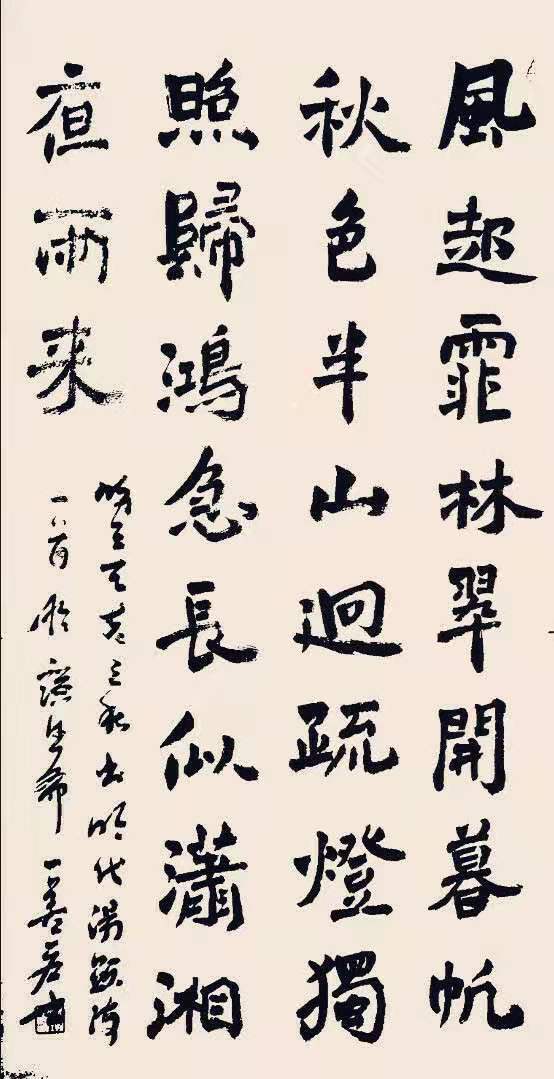 風起霏林翠開暮帆
秋色半山迴疏燈獨
照歸鴻急長似瀟湘
夜雨來
之秋書明代湯顯詩
一首於